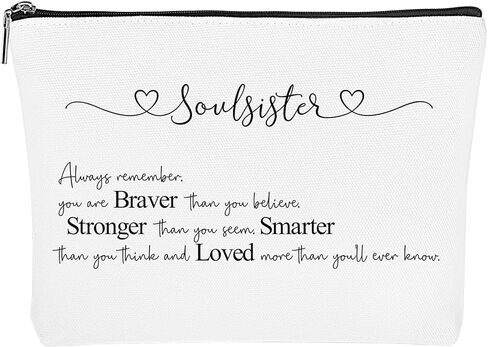 Soulsister
Always remember,
you are Braver than you believe,
Stronger than you seem, Smarter
than you think and Loved more than you'll ever know.